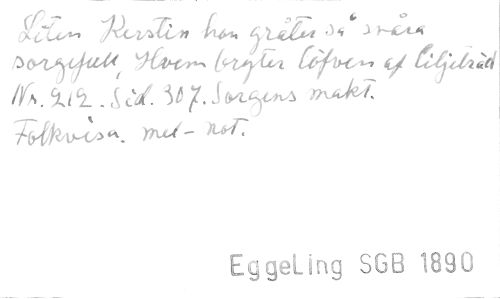 Liten Kerstin hon gråter så svåra
sorgefull, Hvem bryter löfven af Liljeträd
Nr. 212. Sid. 307. Sorgens makt.
Folkvisa. mel-not.
Eggeling SGB 1890